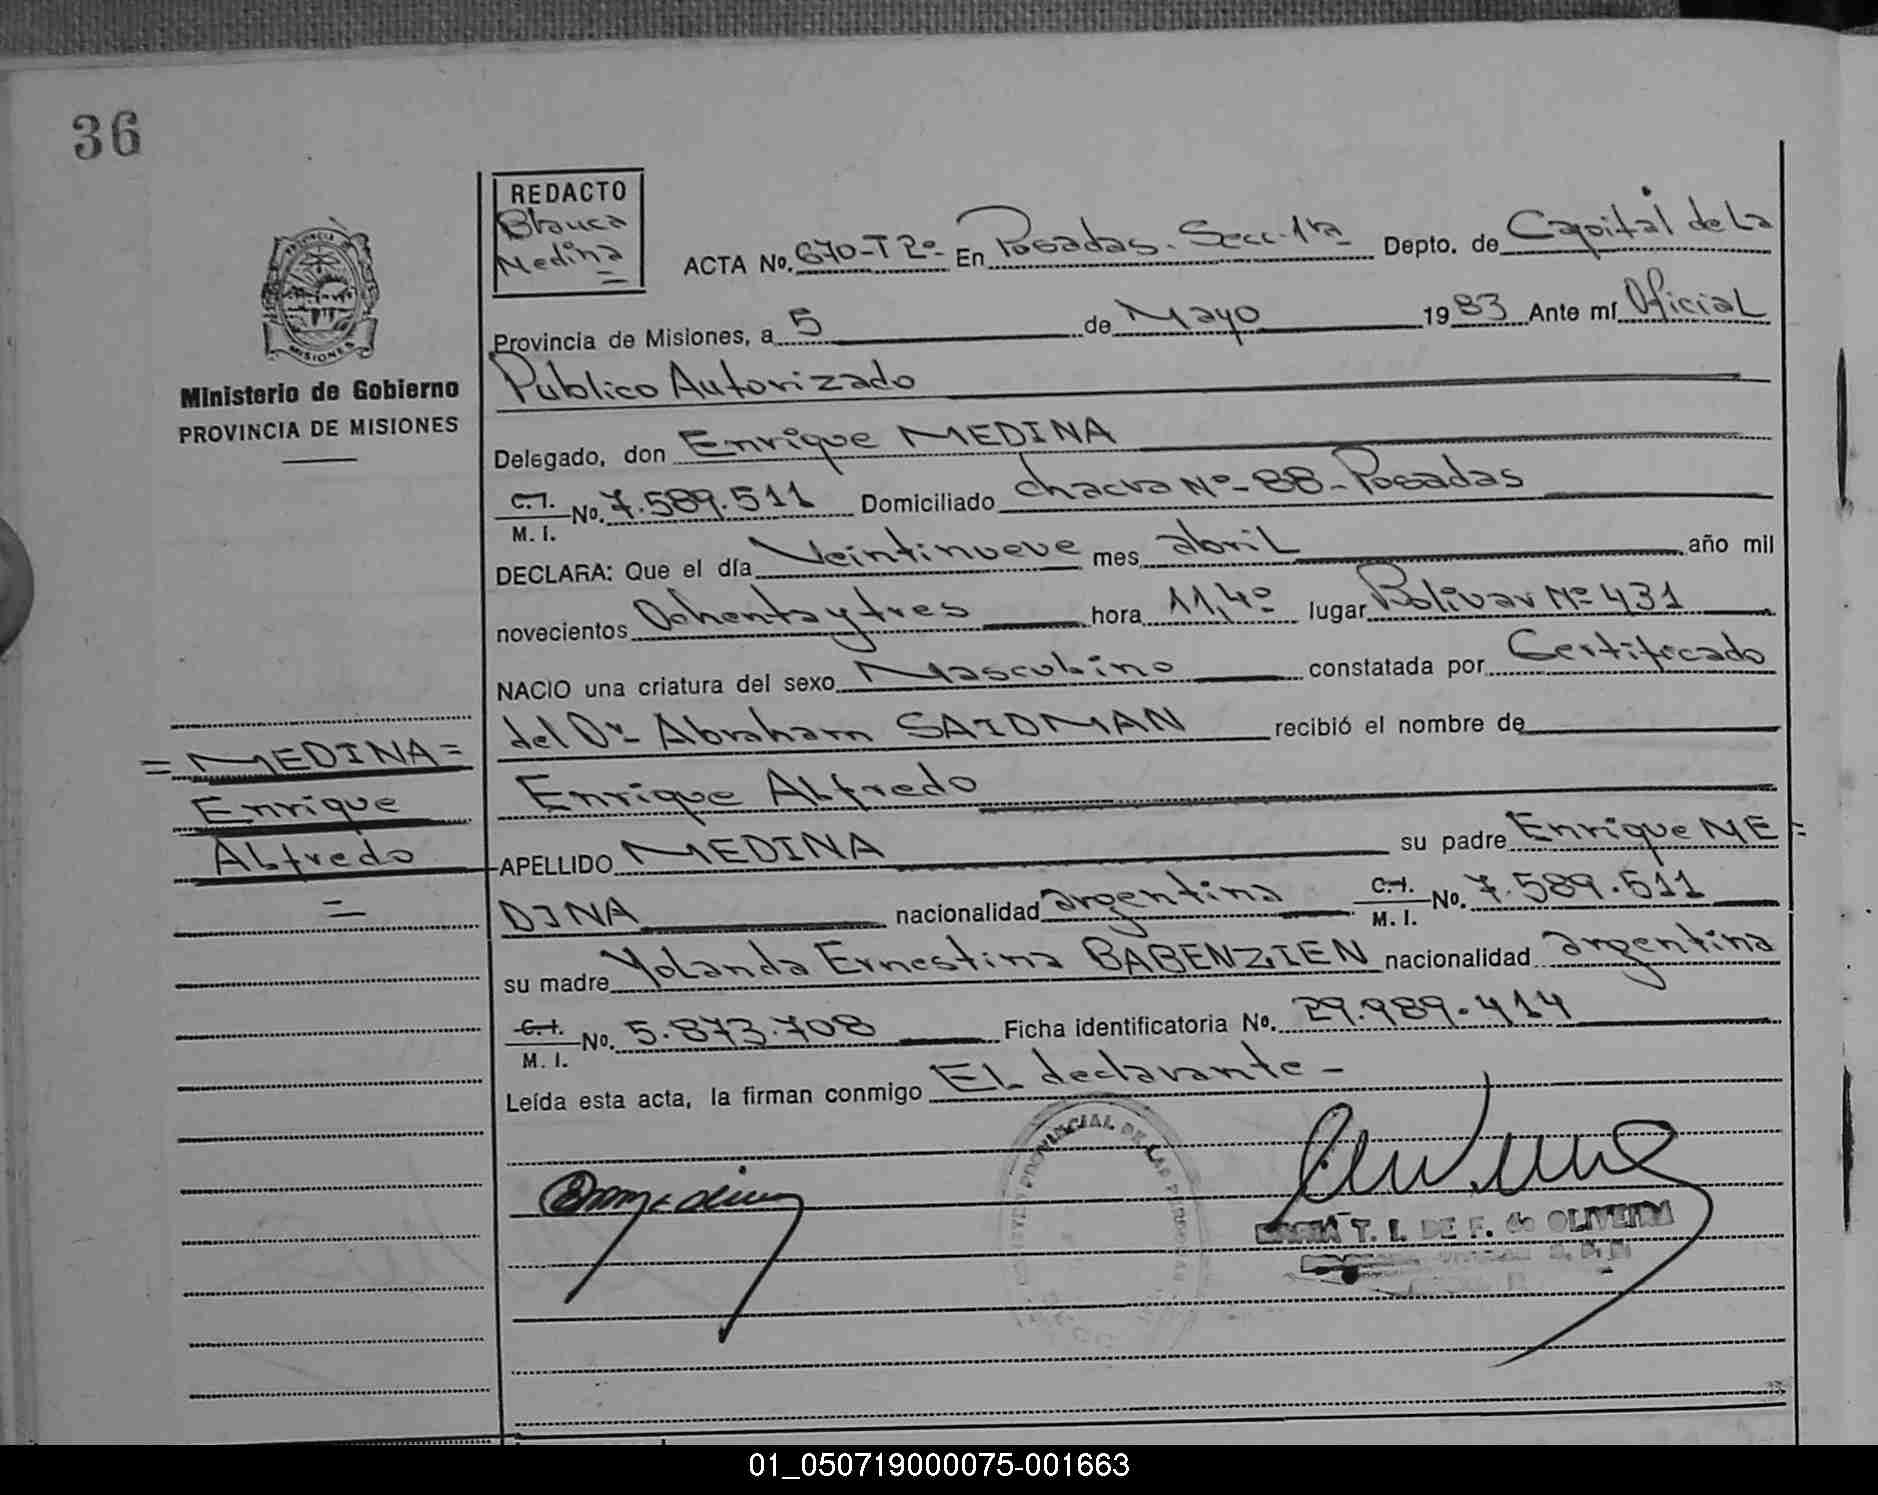 36
REDACTO
Blanca
Medina
ACTA No. 670-T2º- En Posadas. Secc. 1ra Depto. de Capital de La
Provincia de Misiones, a 5 de Mayo 1983 Ante mí Oficial
Publico Autorizado
MISIONES
Ministerio de Gobierno
PROVINCIA DE MISIONES
Delegado, don Enrique MEDINA
C.I.
M. I. No. 7.589.511 Domiciliado chacra Nº-88-Posadas
DECLARA: Que el día Veintinueve mes abril año mil
novecientos Ochentaytres hora 11,4º lugar Bolivar Nº 431
NACIO una criatura del sexo Masculino constatada por Certificado
del Dr Abraham SAIDMAN recibió el nombre de
Enrique Alfredo
= MEDINA =
Enrique
Alfredo
=
APELLIDO MEDINA su padre Enrique ME =
DINA nacionalidad argentina C.I.
M. I. No. 7.589.511
su madre Yolanda Ernestina BABENZIEN nacionalidad argentina
C.I.
M. I. No. 5.873.708 Ficha identificatoria No. 29.989.414
Leída esta acta, la firman conmigo EL declarante -
PROVINCIAL DE LAS PERSONAS
MARIA T. I. DE F. de OLIVEIRA
01_050719000075-001663